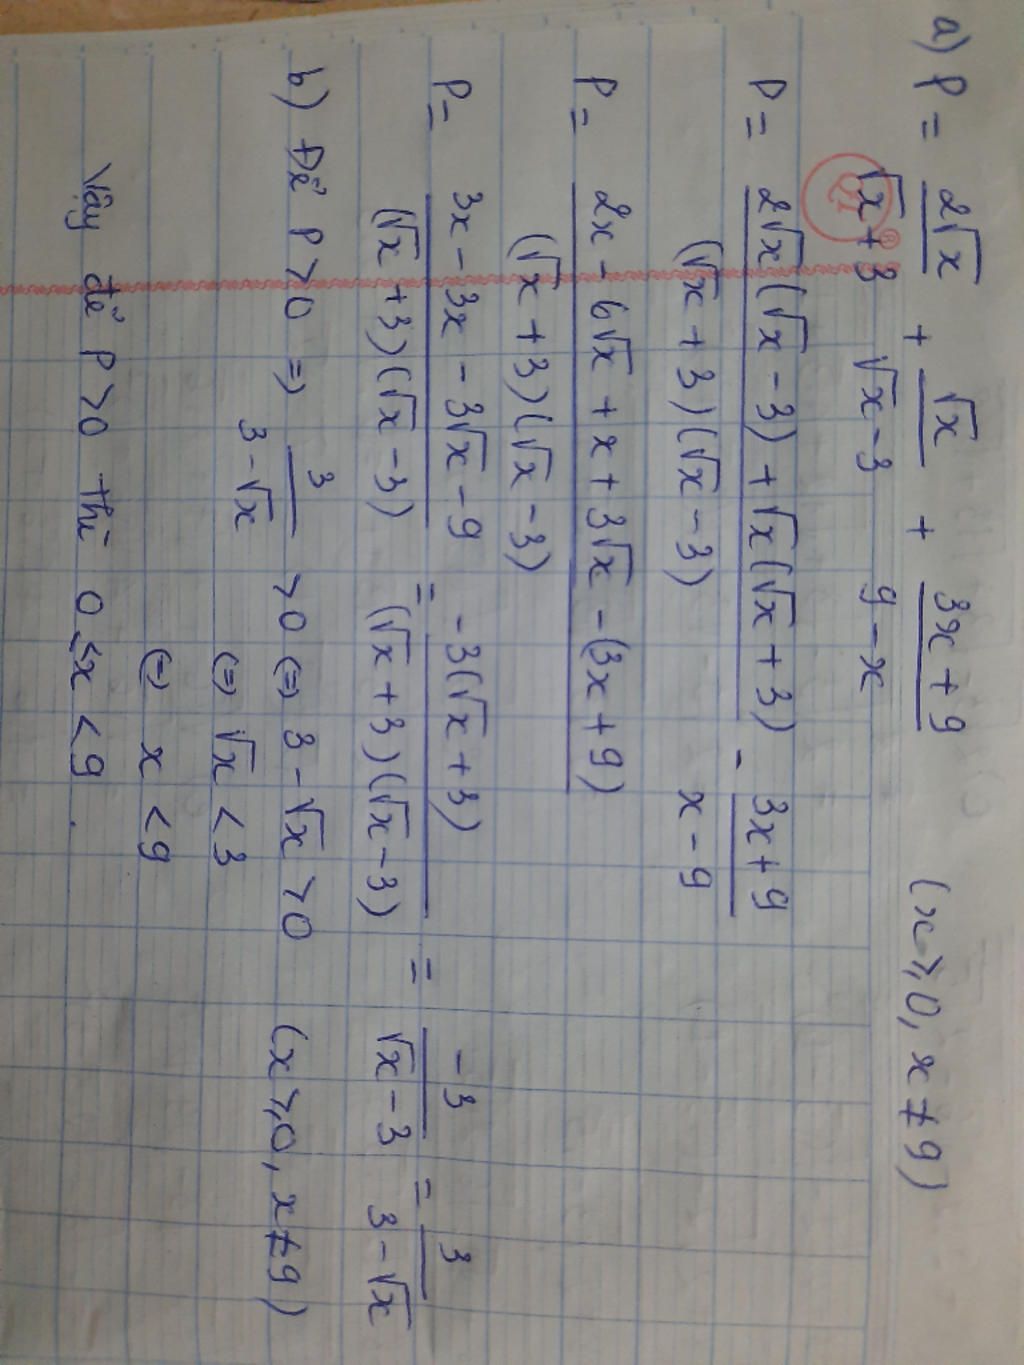 a) P = 2√x / (√x + 3) + √x / (√x - 3) + (3x + 9) / (9 - x) (x ≥ 0, x ≠ 9)
P = (2√x(√x - 3) + √x(√x + 3)) / ((√x + 3)(√x - 3)) - (3x + 9) / (x - 9)
P = (2x - 6√x + x + 3√x - (3x + 9)) / ((√x + 3)(√x - 3))
P = (3x - 3x - 3√x - 9) / ((√x + 3)(√x - 3)) = -3(√x + 3) / ((√x + 3)(√x - 3)) = -3 / (√x - 3) = 3 / (3 - √x)
b) Để P > 0 => 3 / (3 - √x) > 0 (=) 3 - √x > 0 (x ≥ 0, x ≠ 9)
(=) √x < 3
(=) x < 9
Vậy để P > 0 thì 0 ≤ x < 9.